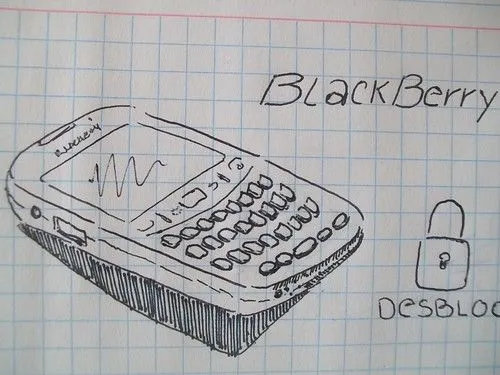 BLackBerry
DesBLOC